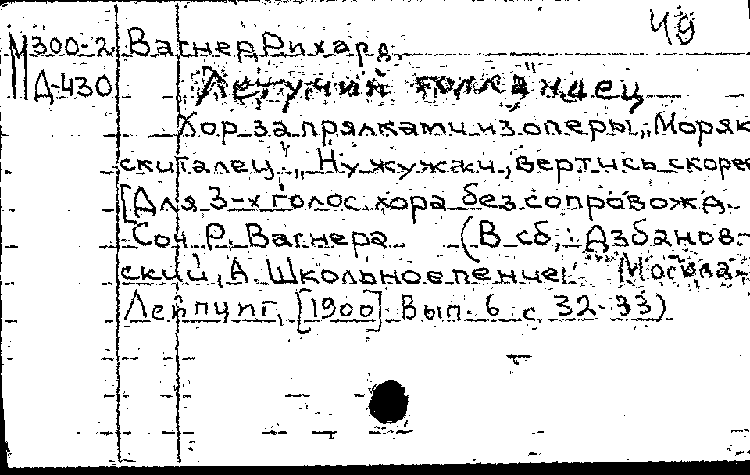 49
М300-2 Вагнер Рихард.
Д-430 "Летучий голландец"
Хор за прялками из оперы „Моряк
скиталец". „Ну жужжи, вертись скорее"
[Для 3-х голос. хора без сопровожд.
Соч. Р. Вагнера (В сб.: Азбанов-
ский, А. Школьное пение. Москва-
Лейпциг, [1900] Вып. 6 с 32-33)